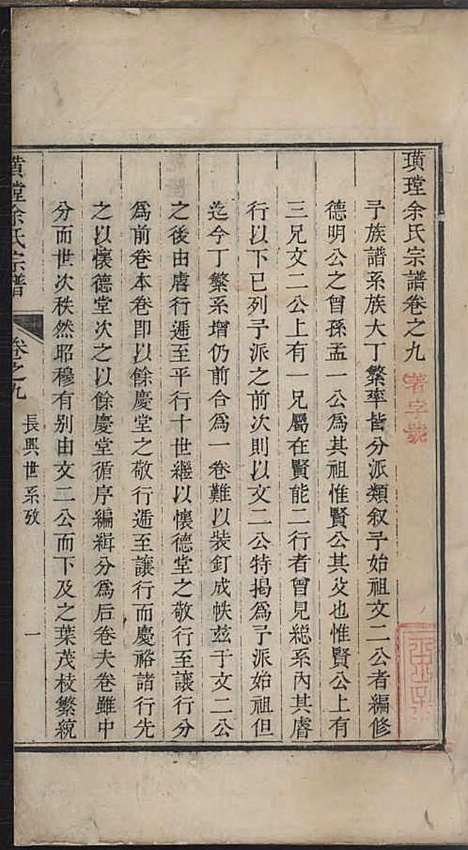 璜瑆余氏宗譜卷之九
著字號
予族譜系族大丁繁率皆分派類叙予始祖文二公者編修
德明公之曾孫孟一公爲其祖惟賢公其父也惟賢公上有
三兄文二公上有一兄屬在賢能二行者曾見總系內其膺
行以下已列予派之前次則以文二公特揭爲予派始祖但
迄今丁繁系增仍前合爲一卷難以裝釘成帙茲于文二公
之後由膺行遞至平行十世繼以懷德堂之敬行至讓行分
爲前卷本卷卽以餘慶堂之敬行遞至讓行而慶裕諸行先
之以懷德堂次之以餘慶堂循序編輯分爲后卷夫卷雖中
分而世次秩然昭穆有别由文二公而下及之葉茂枝繁統
璜瑆余氏宗譜
卷之九
長興世系攷
一